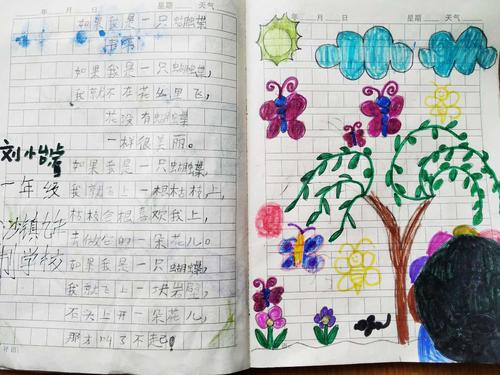 年 月 日 星期 天气
如果我是一只蝴蝶
如果我是一只蝴蝶,
我就不在花丛里飞,
花没有蝴蝶
一样很美丽。
如果我是一只蝴蝶
我就飞上一根枯枝上,
枯枝会很喜欢我上,
去做它的一朵花儿。
如果我是一只蝴蝶,
我就飞上一块岩壁,
石头上开一朵花儿,
那才叫了不起!
刘小
一年级
沙镇
学校
年 月 日 星期 天气